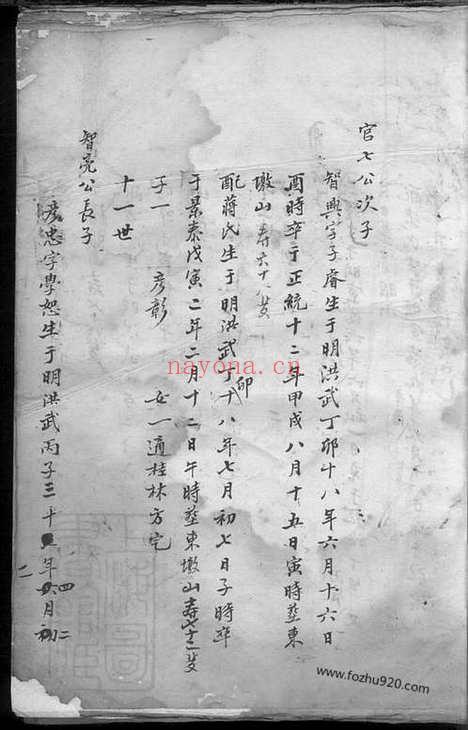 官七公次子
智興字子睿生于明洪武丁卯十八年六月十六日
酉時卒于正統十二年甲戌八月十五日寅時塟東
墩山壽六十八岁
配蔣氏生于明洪武丁卯十八年七月初七日子時卒
于景泰戊寅二年二月十二日午時塟東墩山壽七十二岁
子一 彦彰 女一適桂林方宅
十一世
智亮公長子
彦忠字學恕生于明洪武丙子三十年月初
四二
二
nayona.cn
www.fozhu920.com